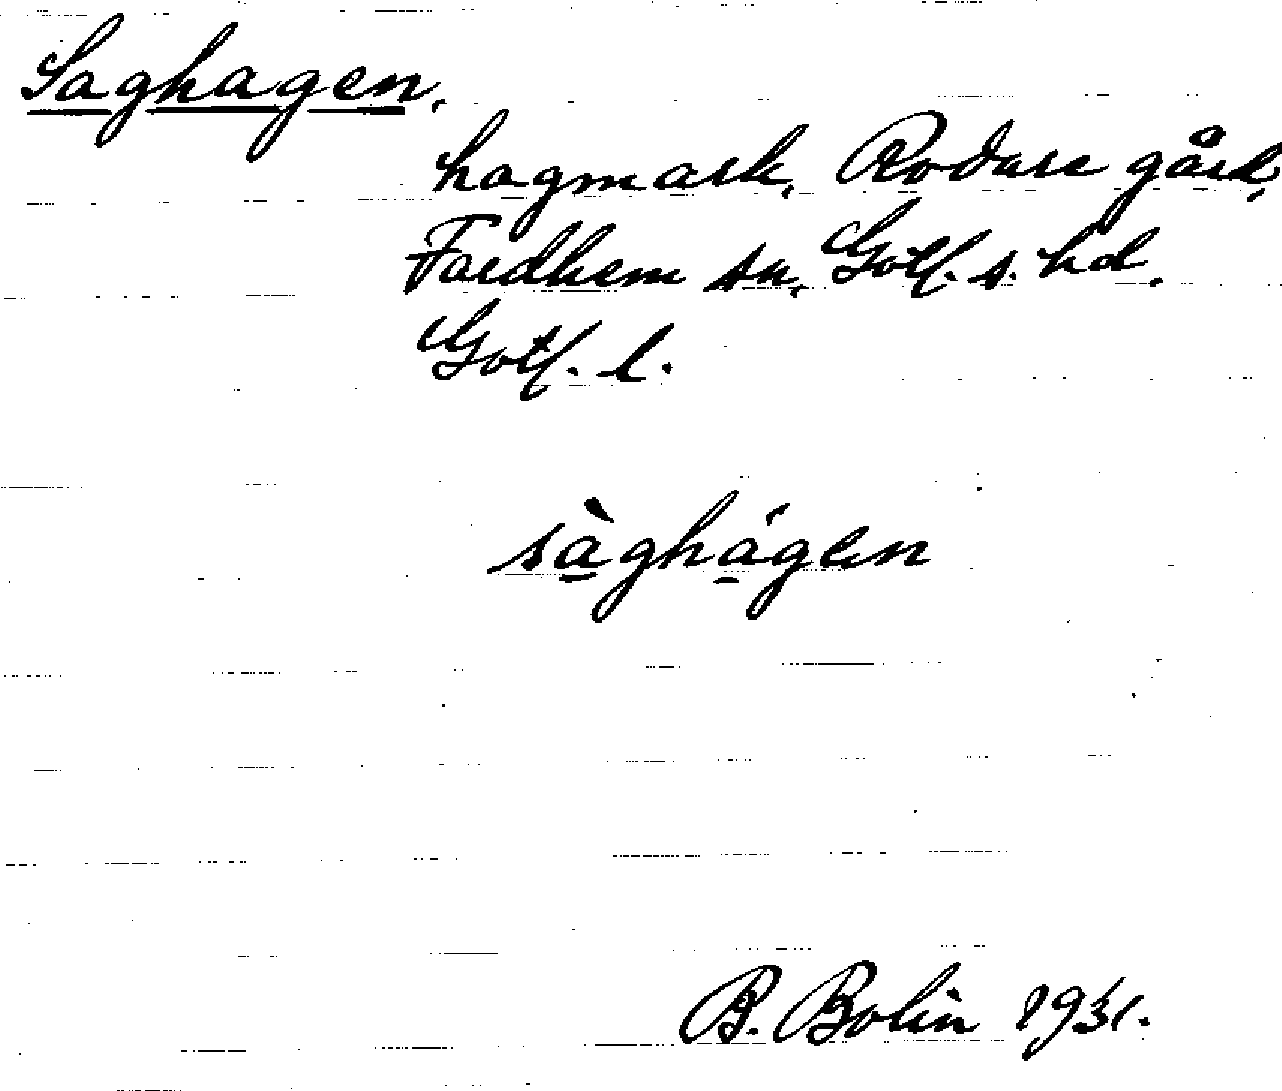 Saghagen.
hagmark, Rodarc gård,
Fardhem sn, Gotl. s. hd.
Gotl. l.
sà̲ghá̲gen
B. Bolin 1931.